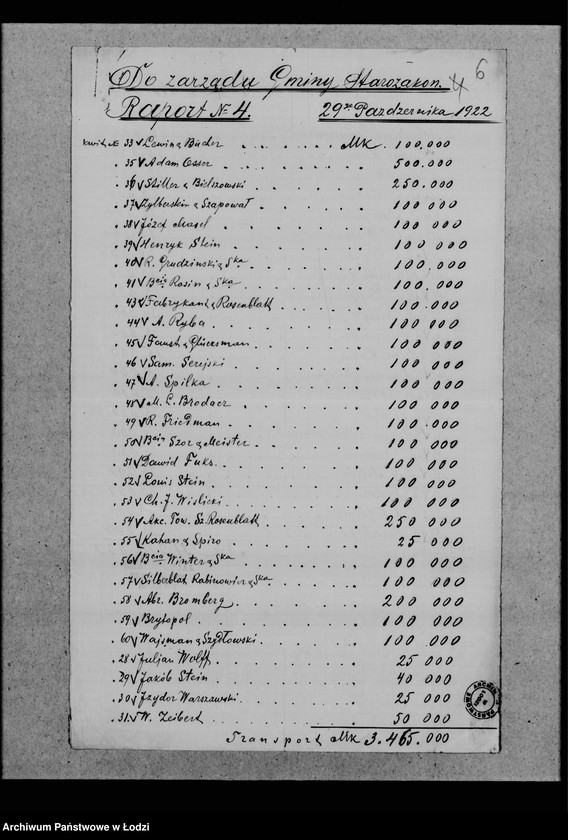 6
Do zarządu Gminy Starozakon.
Raport № 4. 29go Października 1922
kwit. № 33 Lewin & Bücher Mk. 100.000
" 35 Adam Osser 500.000
" 36 Stiller & Bielszowski 250.000
" 37 Zylberstein & Szapował 100 000
" 38 Józef 100 000
" 39 Henryk Stein 100 000
" 40 R. Grudziński & Ska 100.000
" 41 Bcia Rosin & Ska 100.000
" 43 Fabrykant & Rosenblatt 100 000
" 44 A. Ryba 100 000
" 45 Faust & Glücksman 100 000
" 46 Sam. Serejski 100 000
" 47 A. Spilka 100 000
" 48 M. C. Brodacz 100 000
" 49 R. Friedman 100.000
" 50 Bcia Szor & Meister 100 000
" 51 Dawid Fuks. 100 000
" 52 Louis Stein 100 000
" 53 Ch. J. Wislicki 100 000
" 54 Akc. Tow. Sz. Rosenblatt 250 000
" 55 Kahan & Spiro 25 000
" 56 Bcia Winter & Ska 100 000
" 57 Silberblat Rabinowicz & Ska 100 000
" 58 Abr. Bromberg 200 000
" 59 Brytopol 100 000
" 60 Wajsman & Szydłowski 100 000
" 28 Juljan Wolff 25 000
" 29 Jakób Stein 40 000
" 30 Izydor Warszawski 25 000
" 31 W. Zeibert 50 000
Transport Mk 3.465.000
Archiwum Państwowe w Łodzi